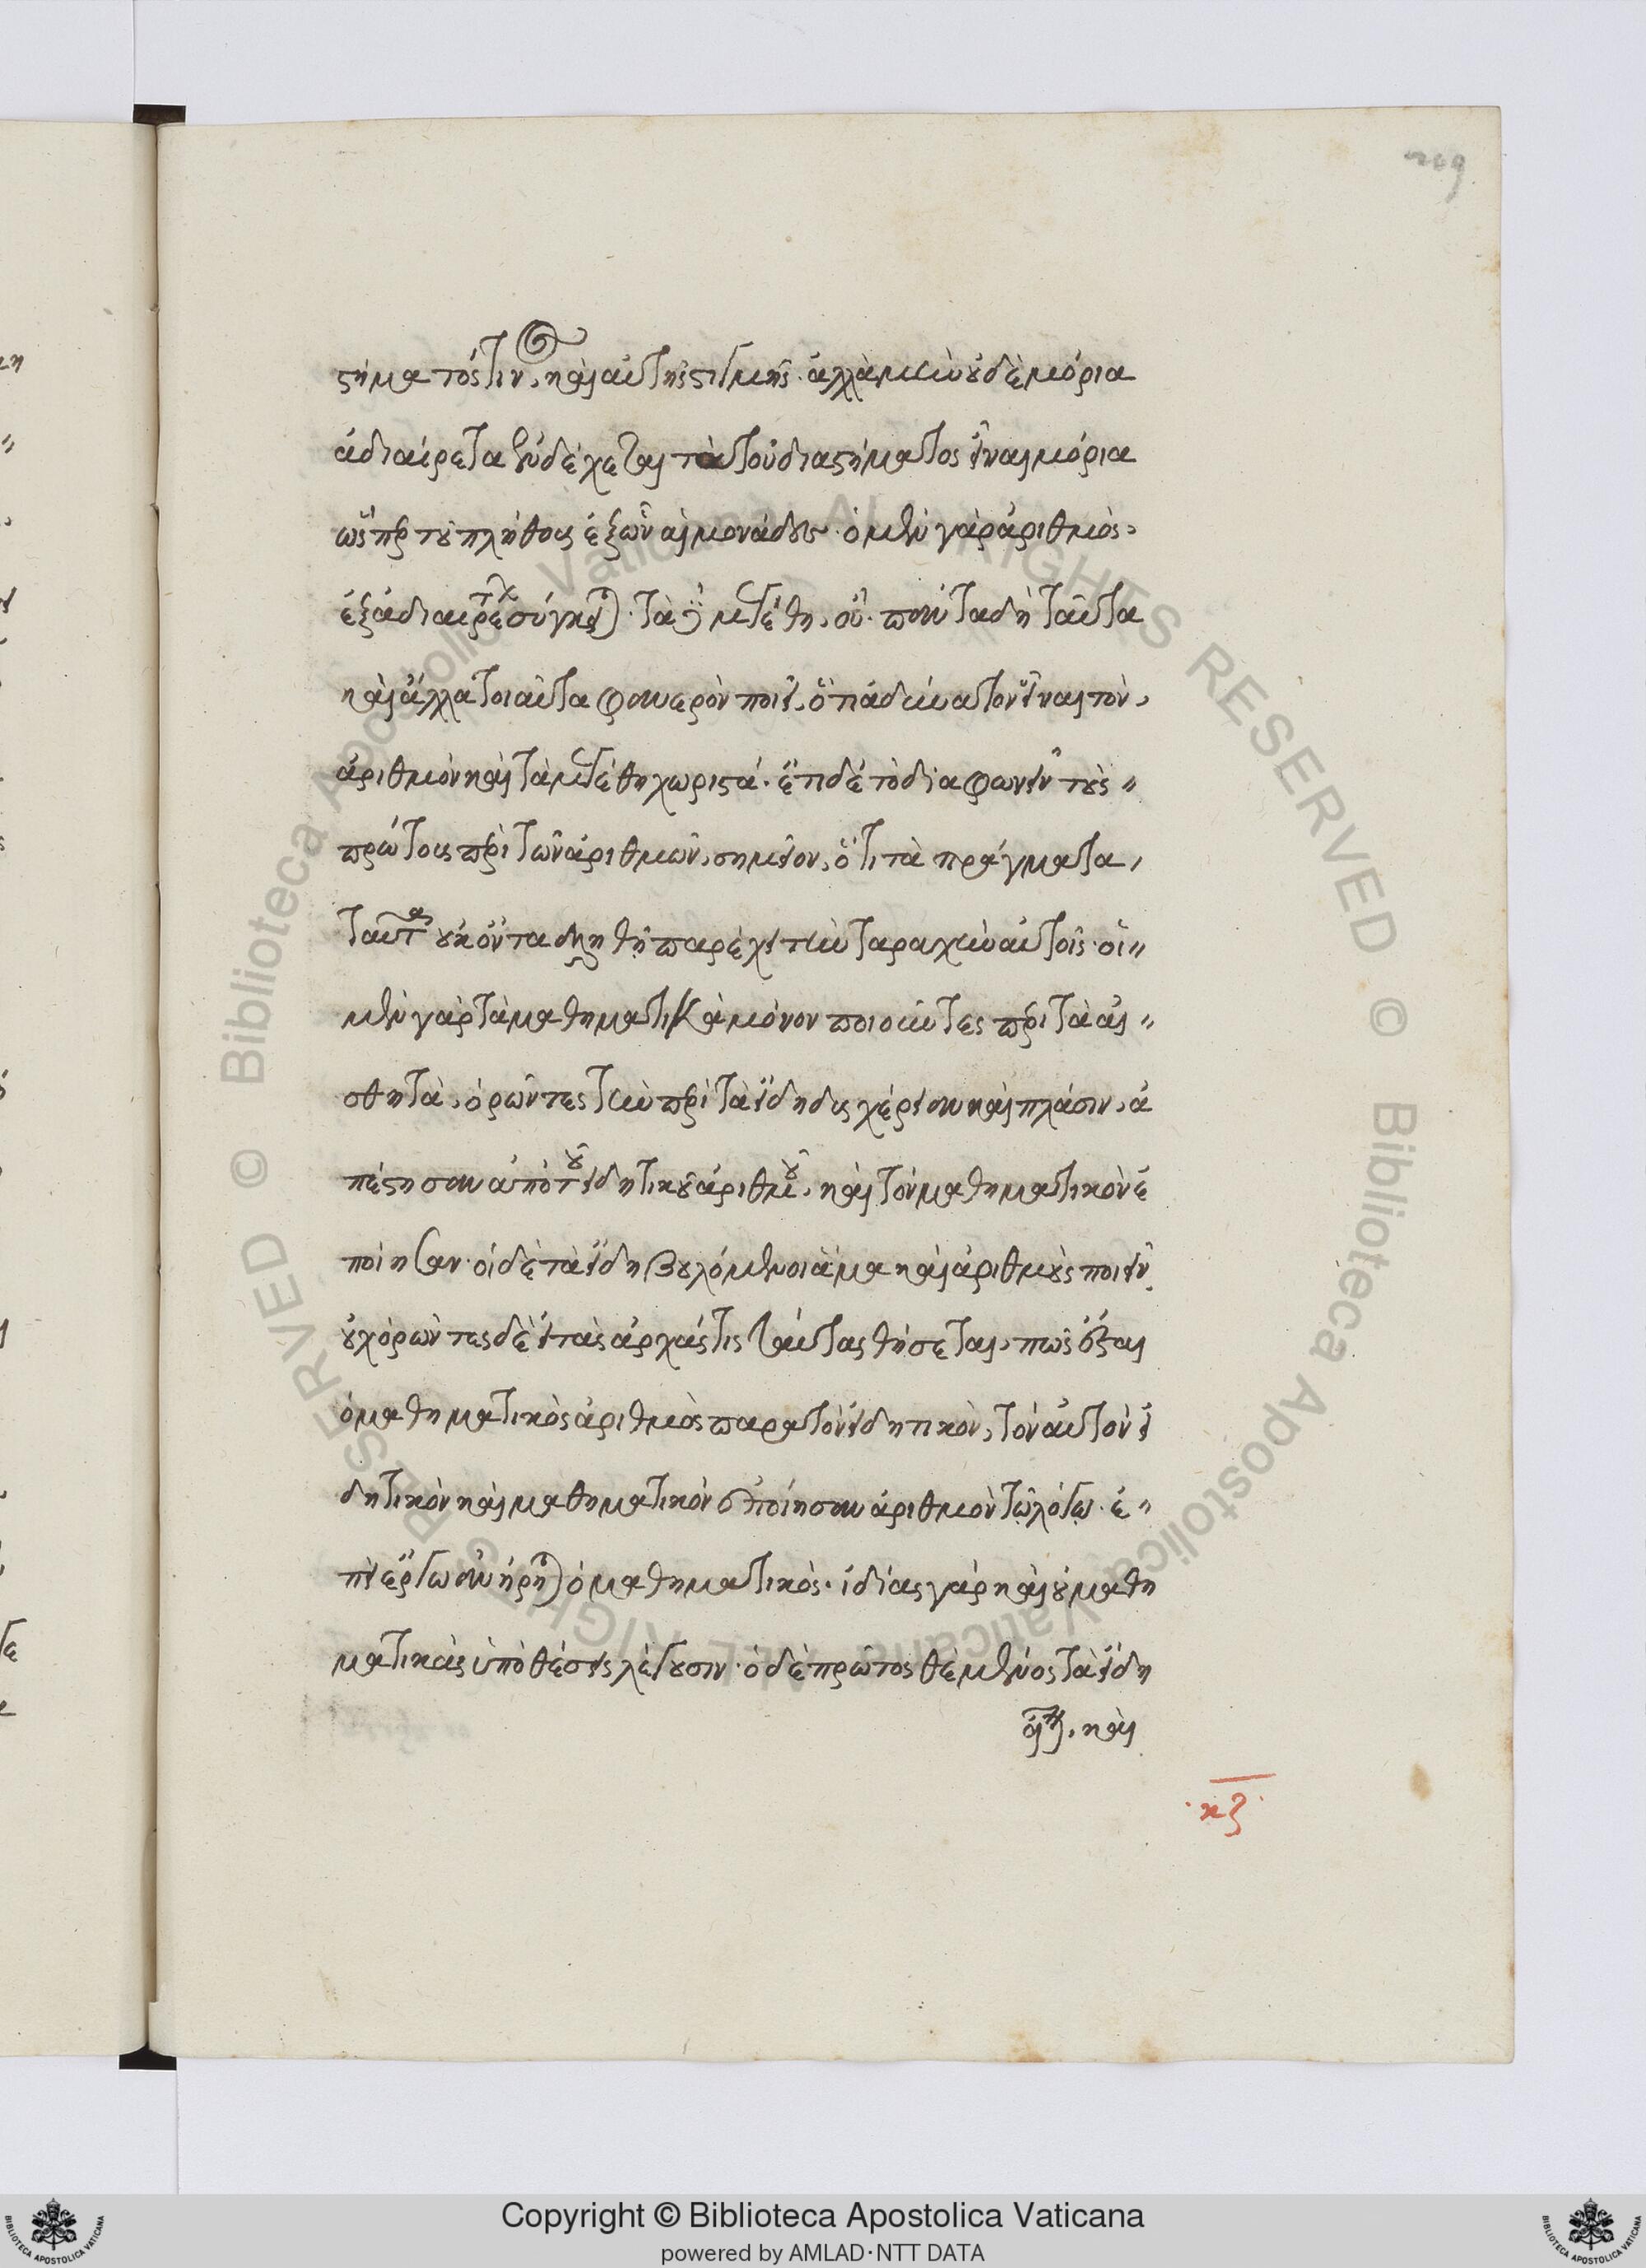 209
στήματός τιν, καὶ αὐτῆς στιγμῆς· ἀλλὰ μὴν οὐδὲ μόρια
ἀδιαίρετα ἐνδέχεται τὰ τοῦ διαστήματος εἶναι μόρια
ὥσπερ τοῦ πλήθους ἐξ ὧν αἱ μονάδες· ὁ μὲν γὰρ ἀριθμὸς,
ἐξ ἀδιαιρέτων σύγκειται· τὰ δὲ μεγέθη, οὔ. πάντα δὴ ταῦτα
καὶ ἄλλα τοιαῦτα φανερὸν ποιεῖ, ὅτι ἀδύνατον εἶναι τὸν,
ἀριθμὸν καὶ τὰ μεγέθη χωριστά· ἔτι δὲ τὸ διαφωνεῖν τοὺς
πρώτους περὶ τῶν ἀριθμῶν, σημεῖον, ὅτι τὰ πράγματα,
ταῦτα οὐκ ὄντα ἀληθῆ παρέχει τὴν ταραχὴν αὐτοῖς· οἱ
μὲν γὰρ τὰ μαθηματικὰ μόνον ποιοῦντες περὶ τὰ αἰ
σθητὰ, ὁρῶντες τὴν περὶ τὰ εἴδη δυσχέρειαν καὶ πλάσιν, ἀ
πέστησαν ἀπὸ τοῦ εἰδητικοῦ ἀριθμοῦ, καὶ τὸν μαθηματικὸν ἐ
ποίησαν· οἱ δὲ τὰ εἴδη βουλόμενοι ἅμα καὶ ἀριθμοὺς ποιεῖν,
οὐχ ὁρῶντες δὲ εἰ τὰς ἀρχάς τις ταύτας θήσεται, πῶς ἔσται
ὁ μαθηματικὸς ἀριθμὸς παρὰ τὸν εἰδητικὸν, τὸν αὐτὸν εἰ
δητικὸν καὶ μαθηματικὸν ἐποίησαν ἀριθμὸν τῷ λόγῳ· ἐ
πεὶ ἔργῳ ἀνῄρηται ὁ μαθηματικός· ἰδίας γὰρ καὶ οὐ μαθη
ματικὰς ὑποθέσεις λέγουσιν· ὁ δὲ πρῶτος θέμενος τὰ εἴδη
εἶναι, καὶ
κζ
Copyright © Biblioteca Apostolica Vaticana
powered by AMLAD·NTT DATA